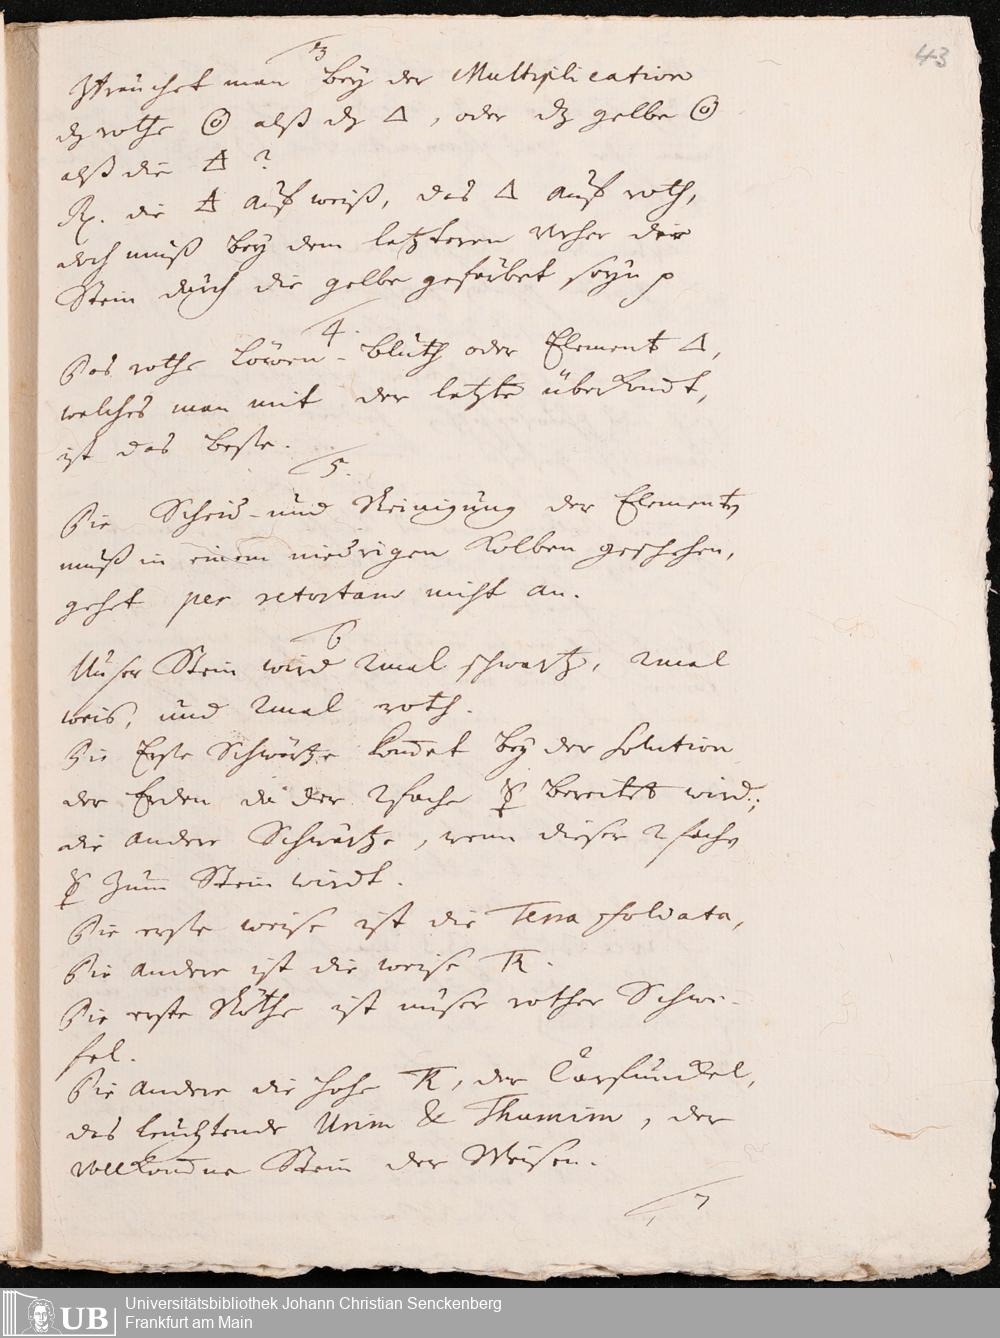 43
3
Brauchet man bey der Multiplication
dz rothe ☉ alß dz △, oder dz gelbe ☉
alß die 🜁 ?
Rx. die 🜁 auf weiß, das △ auf roth,
doch muß bey dem letzteren vorher der
Stein durch die gelbe gefärbet seyn
4.
Das rothe Löwen-bluth oder Element △,
welches man mit der letzte überkomt,
ist das beste.
5.
Die Scheid- und Reinigung der Elementen
muß in einem niedrigen Kolben geschehen,
gehet per retortam nicht an.
6
Unser Stein wird 2mal schwartz, 2mal
weis, und 2mal roth.
Die Erste Schwärtze komet bey der solution
der Erden da der 2fache ☿ bereitet wird;
die andere Schwärtze, wenn dieser 2fache
☿ zum Stein wirdt.
Die erste weise ist die Terra foliata,
Die andere ist die weise TR.
Die erste Röthe ist unser rother Schwe-
fel.
Die andere die hohe TR, der Carfunckel,
das leuchtende Urim & Thumim, der
vollkomne Stein der Weisen.
7
UB
Universitätsbibliothek Johann Christian Senckenberg
Frankfurt am Main